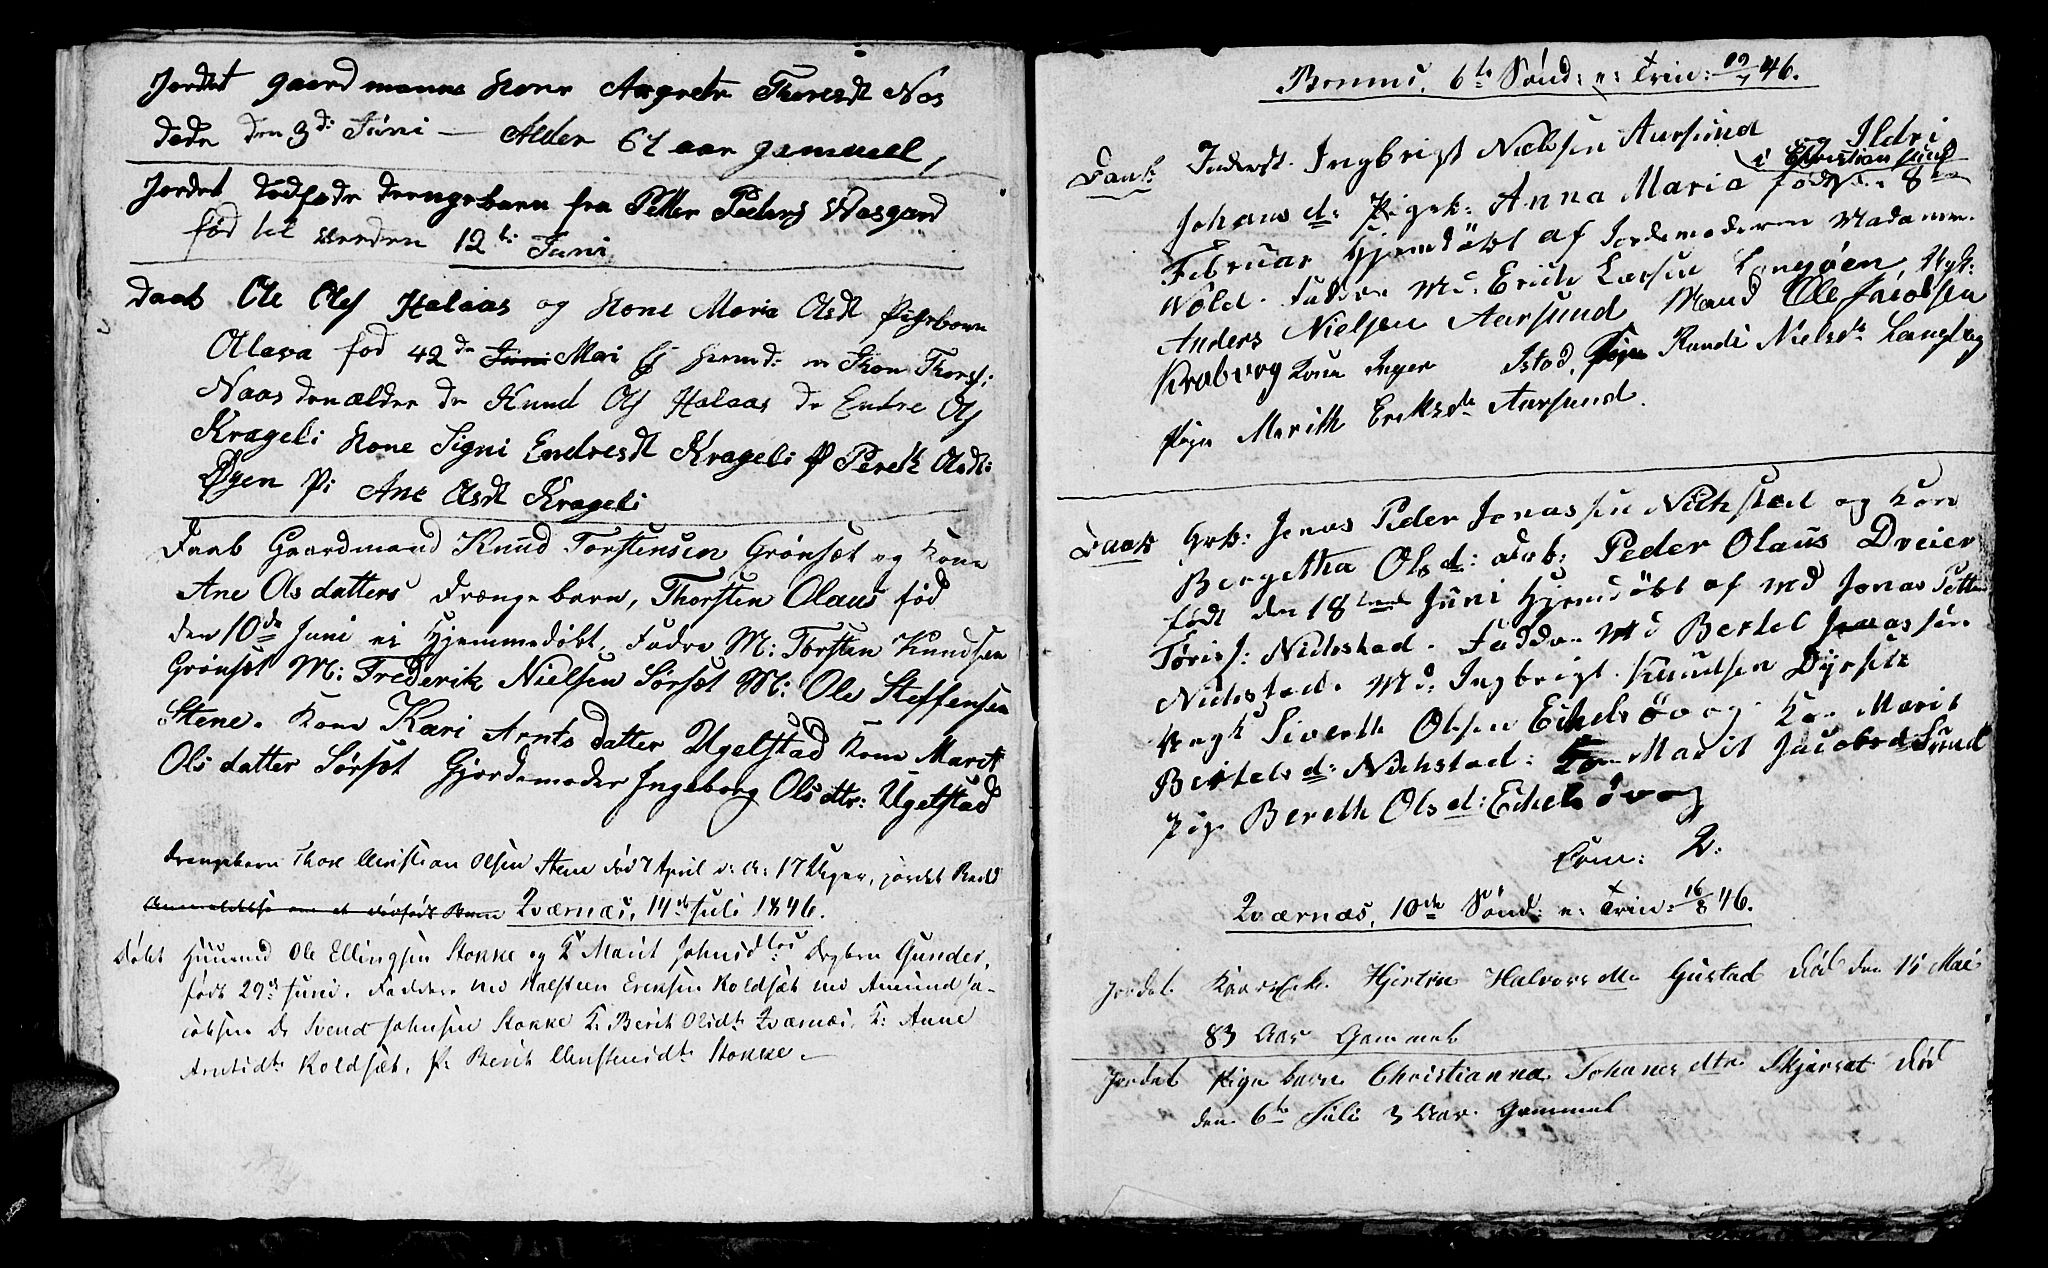 Jordet gaard manns kone Angrete Thoresdt Nos
døde den 3d: Juni — Alder 61 aar gammel,
Jordet dødføde drengebarn fra Petter Peders Nosgard
fød til verden 12te Juni
Daab Ole Ols Halaas og kone Maria Olsdt Pigebarn
Olava fød 42de Juni Mai Ej hemd: m Thore Thors:
Naas den ældre do Knud Ols Halaas do Endre Ols
Krageli kone Signi Endresdt Krageli P Bereth Olsdt:
Øyen Pi Ane Olsdt Krageli
Daab Gaardmand Knud Torstensen Grønset og Kone
Ane Olsdatters Drængebarn, Thorsten Olaus fød
den 10de Juni ei Hjemmedøbt. Fadre M: Torsten Knudsen
Grønset M: Frederik Nielsen Sørset M: Ole Steffensen
Stene. Kone Kari Arntsdatter Ugelstad Kone Marit
Olsdatter Sørset Gjordemoder Ingeborg Olsdtr: Ugelstad
Drengebarn Thore Christian Olsen Stene død 7 April d: A: 17 Uger, jordet
Anmeldelse om et dødfødt Barn Qværnæs, 14de Juli 1846.
Døbt Huusmd Ole Ellingsen Stokke og K Marit Johnsdtrs Dgbrn Gunder,
født 29de Juni. Faddere md Halsteen Erensen Koldsæt md Amund Ja-
cobsen Do Svend Johnsen Stokke K: Berit Olsdtr Qværnæs. K: Anne
Arntsdtr Koldsæt, P: Berit Christensdtr Stokke.
Bremnes, 6te Sønd: e: Trin: 19/7 46.
Daab Inderst Ingbrigt Nielsen Aarsund og Ildri
i Christiansund
Johans d: Pigeb: Anna Maria født 8de
Februar Hjemdöbt af Jordemoderen Madamme
Wold. Fadder Md: Erich Larsen Langøen, Ugk:
Anders Nielsen Aarsund Mand Ole Jacobsen
Kroborg Kone Inger Istad, Pige Randi Nielsdr Langslag
Pige Marith Eriksdr Aarsund.
Daab Grb: Jonas Peder Jonassen Nichstad og Kone
Bergetha Olsd: Drb: Peder Olaus Dreier
født den 18tende Juni Hjemdöbt af Md Jonas Petter
Nichstad. Fadder Md Bertel Jonassen
Nichstad. Md: Ingbrigt Knudsen Dyrset
Ungk Siverth Olsen Eikelsövog. Kon Marit
Bertelsd: Nichstad: Kon Marit Jacobsd: Sund
Pige Bereth Olsd: Eikelsövog
Com: 2:
Qværnæs, 10de Sønd: e: Trin: 16/8 46.
Jordet Hjertru Halvorsdtr Gustad død den 15 Mai
83 Aar Gammel
Jordet Pige barn Christianna Johanesdtr Skjærset død
den 6te Juli 3 Aar Gammel